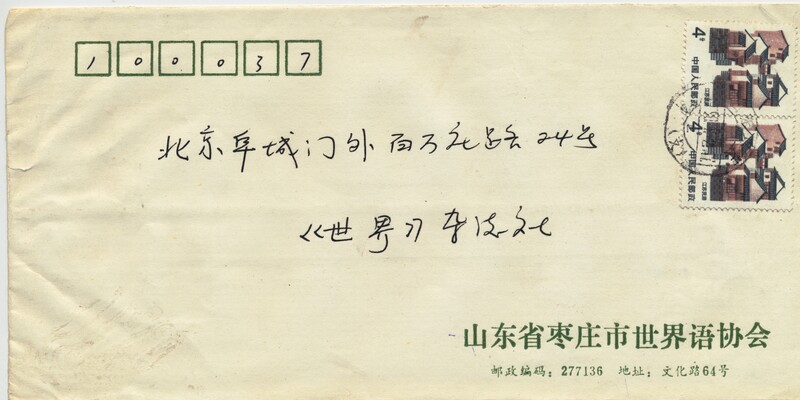 100037
北京阜城门外百万庄路24号
《世界》杂志社
山东省枣庄市世界语协会
邮政编码：277136 地址：文化路64号
4分
中国人民邮政
江苏民居
4分
中国人民邮政
江苏民居